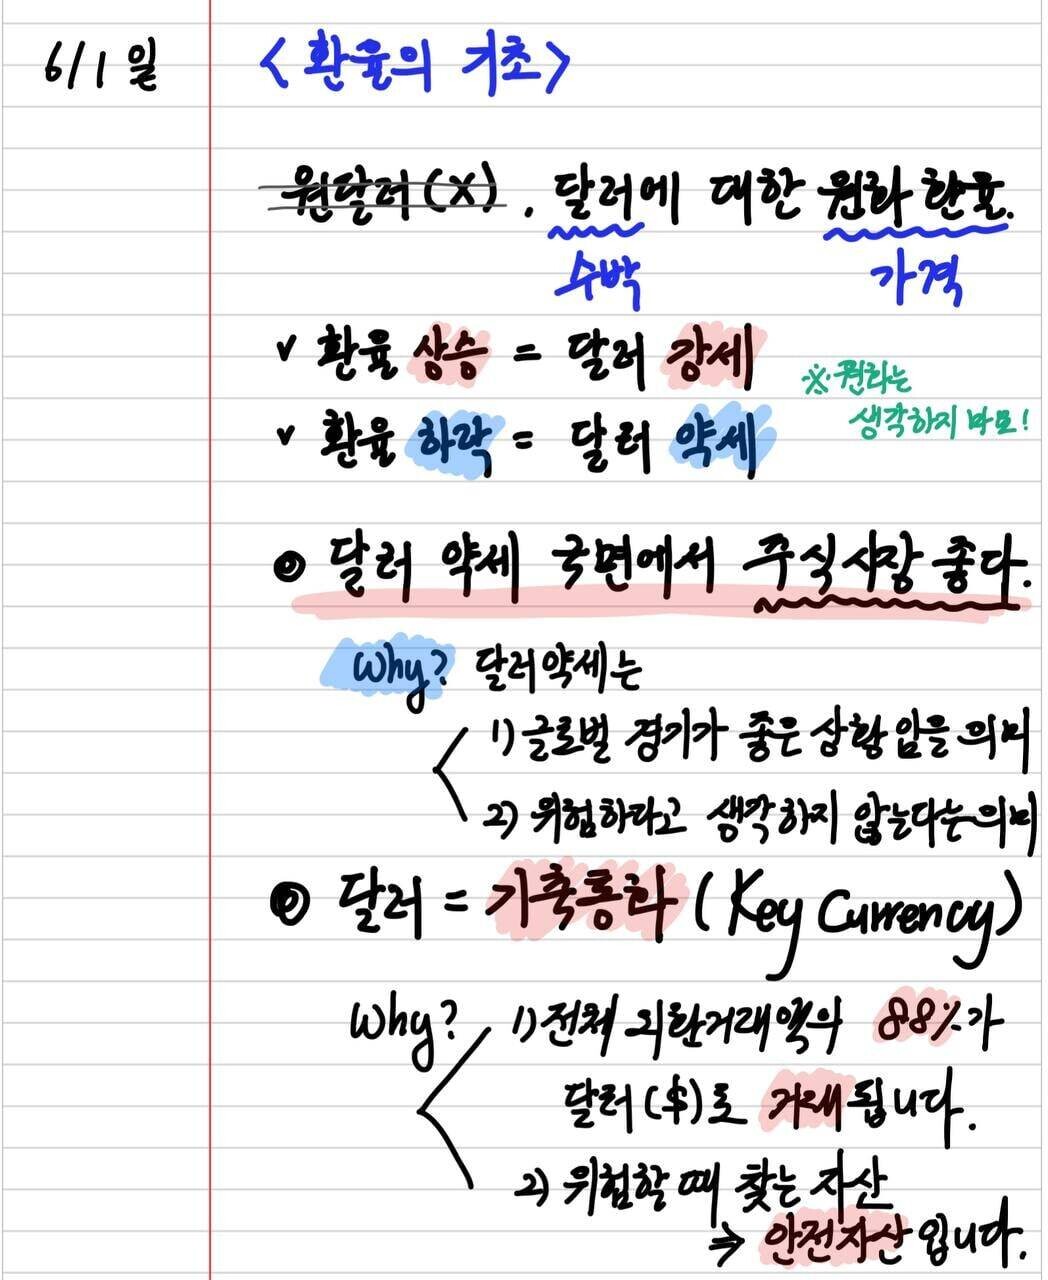 6/1일 <환율의 기초>
원달러(X). 달러에 대한 원화 환율.
수박 가격
v 환율 상승 = 달러 강세
※ 원화는
v 환율 하락 = 달러 약세
생각하지 마요!
달러 약세 국면에서 주식시장 좋다.
Why? 달러약세는
1) 글로벌 경기가 좋은 상황 임을 의미
2) 위험하다고 생각하지 않는다는 의미
달러 = 기축통화 (Key Currency)
Why? 1) 전체 외환거래액의 88%가
달러($)로 거래됩니다.
2) 위험할 때 찾는 자산
⇒ 안전자산입니다.